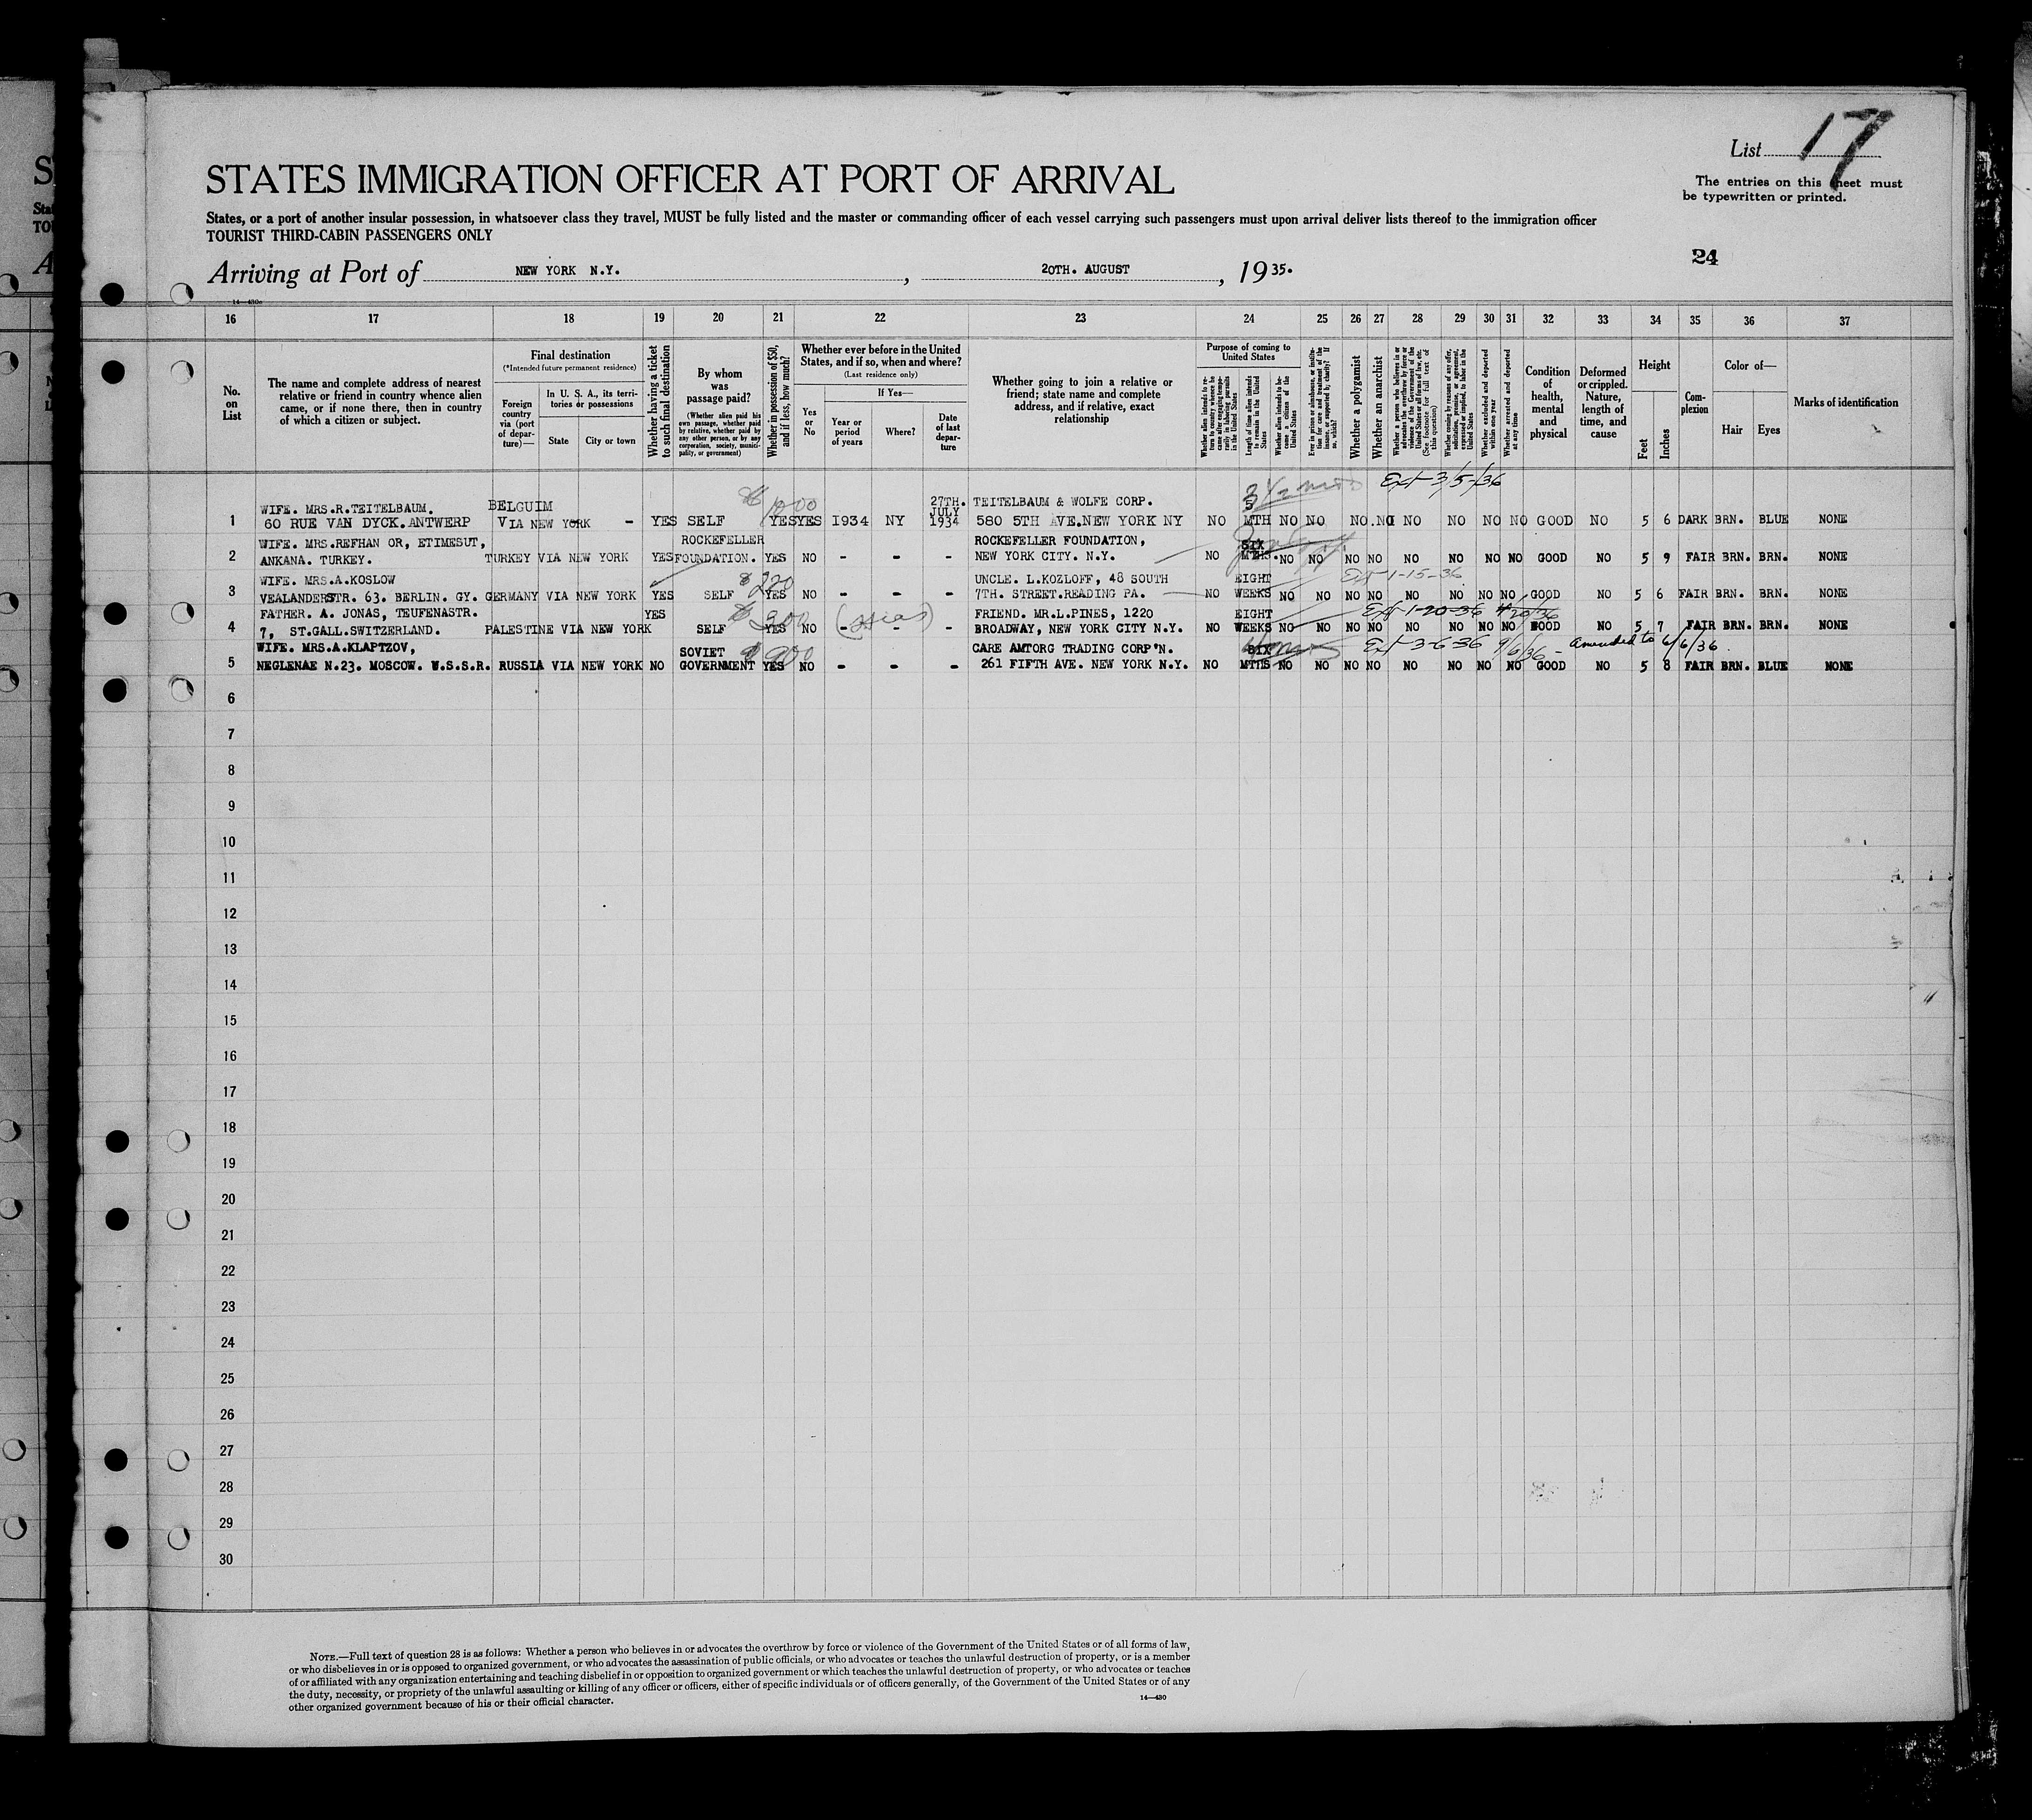 List 17
The entries on this sheet must
be typewritten or printed.
STATES IMMIGRATION OFFICER AT PORT OF ARRIVAL
States, or a port of another insular possession, in whatsoever class they travel, MUST be fully listed and the master or commanding officer of each vessel carrying such passengers must upon arrival deliver lists thereof to the immigration officer
TOURIST THIRD-CABIN PASSENGERS ONLY
24
Arriving at Port of NEW YORK N.Y. , 20TH. AUGUST , 1935.
14—430a
16 17 18 19 20 21 22 23 24 25 26 27 28 29 30 31 32 33 34 35 36 37
No. on List
The name and complete address of nearest relative or friend in country whence alien came, or if none there, then in country of which a citizen or subject.
Final destination
(*Intended future permanent residence)
Foreign country via (port of departure)—
In U. S. A., its territories or possessions
State
City or town
Whether having a ticket to such final destination
By whom was passage paid?
(Whether alien paid his own passage, whether paid by relative, whether paid by any other person, or by any corporation, society, municipality, or government)
Whether in possession of $50, and if less, how much?
Whether ever before in the United States, and if so, when and where?
(Last residence only)
Yes or No
If Yes—
Year or period of years
Where?
Date of last departure
Whether going to join a relative or friend; state name and complete address, and if relative, exact relationship
Purpose of coming to United States
Whether alien intends to return to country whence he came after engaging temporarily in laboring pursuits in the United States
Length of time alien intends to remain in the United States
Whether alien intends to become a citizen of the United States
Ever in prison or almshouse, or institution for care and treatment of the insane, or supported by charity? If so, which?
Whether a polygamist
Whether an anarchist
Whether a person who believes in or advocates the overthrow by force or violence of the Government of the United States or all forms of law, etc. (See footnote for full text of this question)
Whether coming by reason of any offer, solicitation, promise, or agreement, expressed or implied, to labor in the United States
Whether excluded and deported within one year
Whether arrested and deported at any time
Condition of health, mental and physical
Deformed or crippled. Nature, length of time, and cause
Height
Feet
Inches
Complexion
Color of—
Hair
Eyes
Marks of identification
Ext 3/5/36
WIFE. MRS.R.TEITELBAUM. BELGUIM 1000 27TH. JULY TEITELBAUM & WOLFE CORP. 5
1 60 RUE VAN DYCK. ANTWERP VIA NEW YORK - YES SELF YES YES 1934 NY 1934 580 5TH AVE.NEW YORK NY NO MTH NO NO NO. NO NO NO NO NO GOOD NO 5 6 DARK BRN. BLUE NONE
WIFE. MRS.REFHAN OR, ETIMESUT, ROCKEFELLER ROCKEFELLER FOUNDATION, SIX
2 ANKANA. TURKEY. TURKEY VIA NEW YORK YES FOUNDATION. YES NO - - - NEW YORK CITY. N.Y. NO MTHS. NO NO NO NO NO NO NO NO GOOD NO 5 9 FAIR BRN. BRN. NONE
WIFE. MRS.A.KOSLOW $ 220 UNCLE. L.KOZLOFF, 48 SOUTH EIGHT Ext 1-15-36
3 VEALANDERSTR. 63. BERLIN. GY. GERMANY VIA NEW YORK YES SELF YES NO - - - 7TH. STREET.READING PA. NO WEEKS NO NO NO NO NO NO NO NO GOOD NO 5 6 FAIR BRN. BRN. NONE
FATHER. A. JONAS, TEUFENASTR. YES $ 300 FRIEND. MR.L.PINES, 1220 EIGHT Ext 1-20-36 4/20/36
4 7, ST.GALL.SWITZERLAND. PALESTINE VIA NEW YORK SELF YES NO - - - BROADWAY, NEW YORK CITY N.Y. NO WEEKS NO NO NO NO NO NO NO NO GOOD NO 5 7 FAIR BRN. BRN. NONE
WIFE. MRS.A.KLAPTZOV, SOVIET $ 900 CARE AMTORG TRADING CORP'N. SIX Ext 3-6-36 9/6/36 - amended to 6/6/36.
5 NEGLENAE N.23. MOSCOW. W.S.S.R. RUSSIA VIA NEW YORK NO GOVERNMENT YES NO - - - 261 FIFTH AVE. NEW YORK N.Y. NO MTHS NO NO NO NO NO NO NO NO GOOD NO 5 8 FAIR BRN. BLUE NONE
6
7
8
9
10
11
12
13
14
15
16
17
18
19
20
21
22
23
24
25
26
27
28
29
30
NOTE.—Full text of question 28 is as follows: Whether a person who believes in or advocates the overthrow by force or violence of the Government of the United States or of all forms of law,
or who disbelieves in or is opposed to organized government, or who advocates the assassination of public officials, or who advocates or teaches the unlawful destruction of property, or is a member
of or affiliated with any organization entertaining and teaching disbelief in or opposition to organized government or which teaches the unlawful destruction of property, or who advocates or teaches
the duty, necessity, or propriety of the unlawful assaulting or killing of any officer or officers, either of specific individuals or of officers generally, of the Government of the United States or of any
other organized government because of his or their official character.
14—430